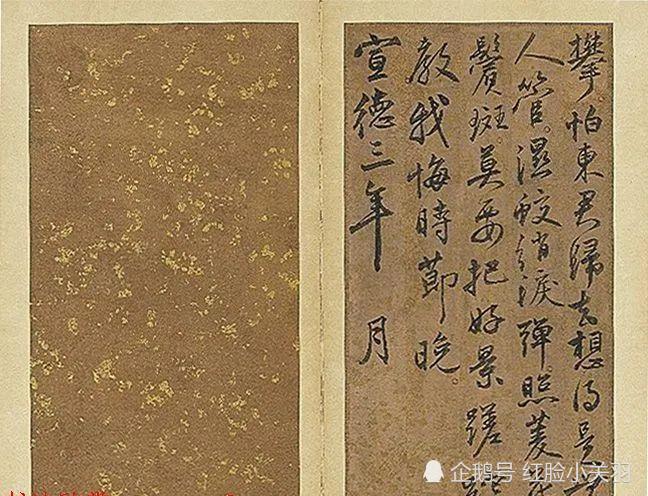 攀怕東君歸去想得是
人管濕鮫綃淚彈照菱花
鬢斑莫要把好景蹉跎
教我悔時節晚
宣德三年 月
企鹅号 红脸小关羽